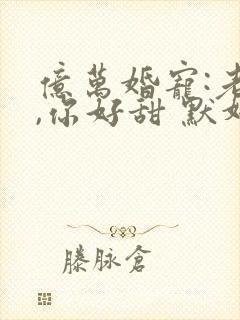 億萬婚寵:老
,你好甜 默如
滕脉倉